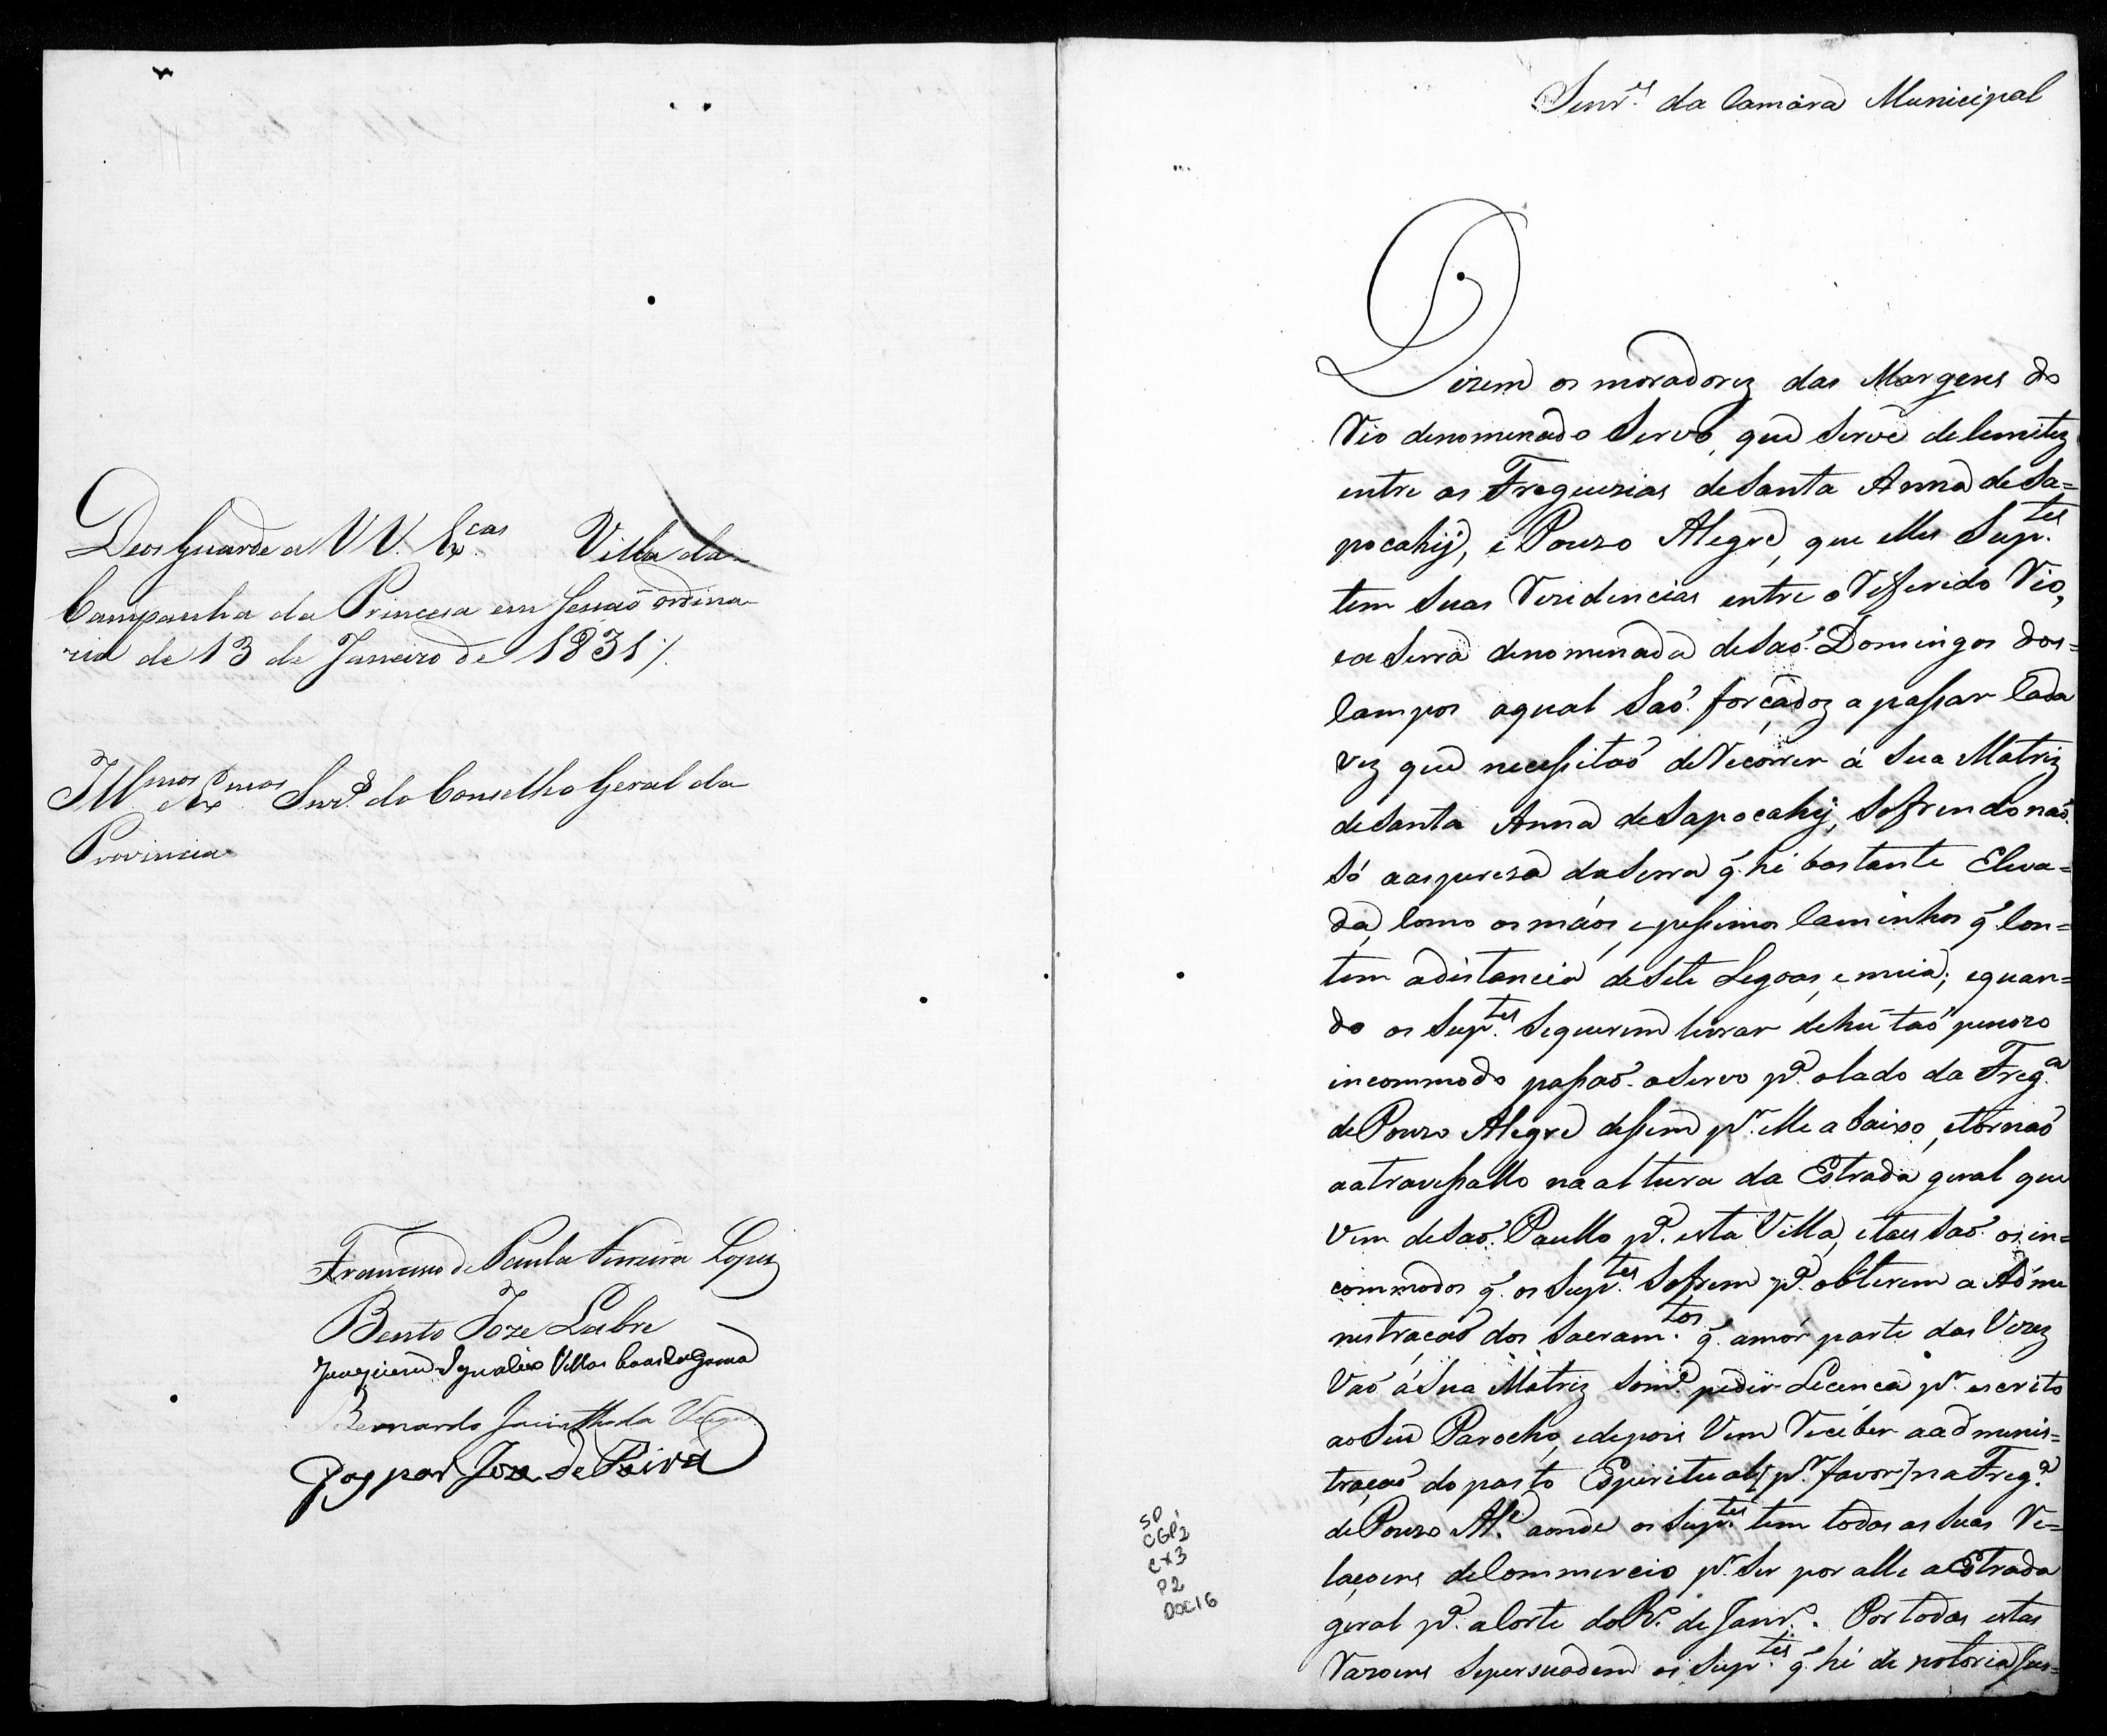 Deos Guarde a VV. Ex.cas Villa da
Campanha da Princesa em sessaõ ordina
ria de 13 de Janeiro de 1831/.
Ill.mos e Ex.mos Snr.s do Conselho Geral da
Provincia
Francisco de Paula Ferreira Lopes
Bento Joze Labre
Joaquim Ignacio Villas boas da Gama
Bernardo Jacintho da Veiga
Gaspar Joze de Paiva
Senr.es da Camara Municipal
Dizem os moradorez das Margens do
Rio denomenado Servo, que serve de lemitez
entre as Freguezias de Santa Anna de Sa=
pocahÿ, e Pouzo Alegre, que elles Sup.tes
tem suas Rezidencias entre o Refferido Rio,
e a serra denomenada de Saõ Domingos dos=
Campos aqual saõ forçadoz a passar Cada
vez que necessitaõ de Recorrer á sua Matriz
de Santa Anna de Sapocahÿ, sofrendo naõ
só a aspereza da Serra q̃ hé bastante Eleva=
da, Como os máos, e pessimos Caminhos q̃ Con=
tem a distancia de sete Legoas, e meia; e quan=
do os Sup.tes se querem livrar de hũ taõ penozo
incommodo passaõ o Servo p.a o lado da Freg.a
de Pouzo Alegre dessem p.r elle a baixo, e tornaõ
a atravessallo na altura da Estrada geral que
vem de Saõ Paullo p.a esta Villa, e taes saõ os in=
commodos q̃ os Sup.tes sofrem p.a obterem a Adme
nistraçaõ dos Sacram.tos q̃ a mór parte das Vezez
Vaõ á sua Matriz som.e pedir Lecença p.r escrito
ao seu Parocho, e depois Vem Receber a admenis=
traçaõ do pasto Espiritual [p.r favor] na Freg.a
de Pouzo Al.e aonde os Sup.tes tem todas as suas Re=
laçoens de Commercio p.r ser por alle a Estrada
geral p.a a Corte do R.o de Janr.o. Por todas estas
Razoens se persuadem os Sup.tes q̃ hé de notoria Jus=
SP
CGP2
CX3
P2
DOC16